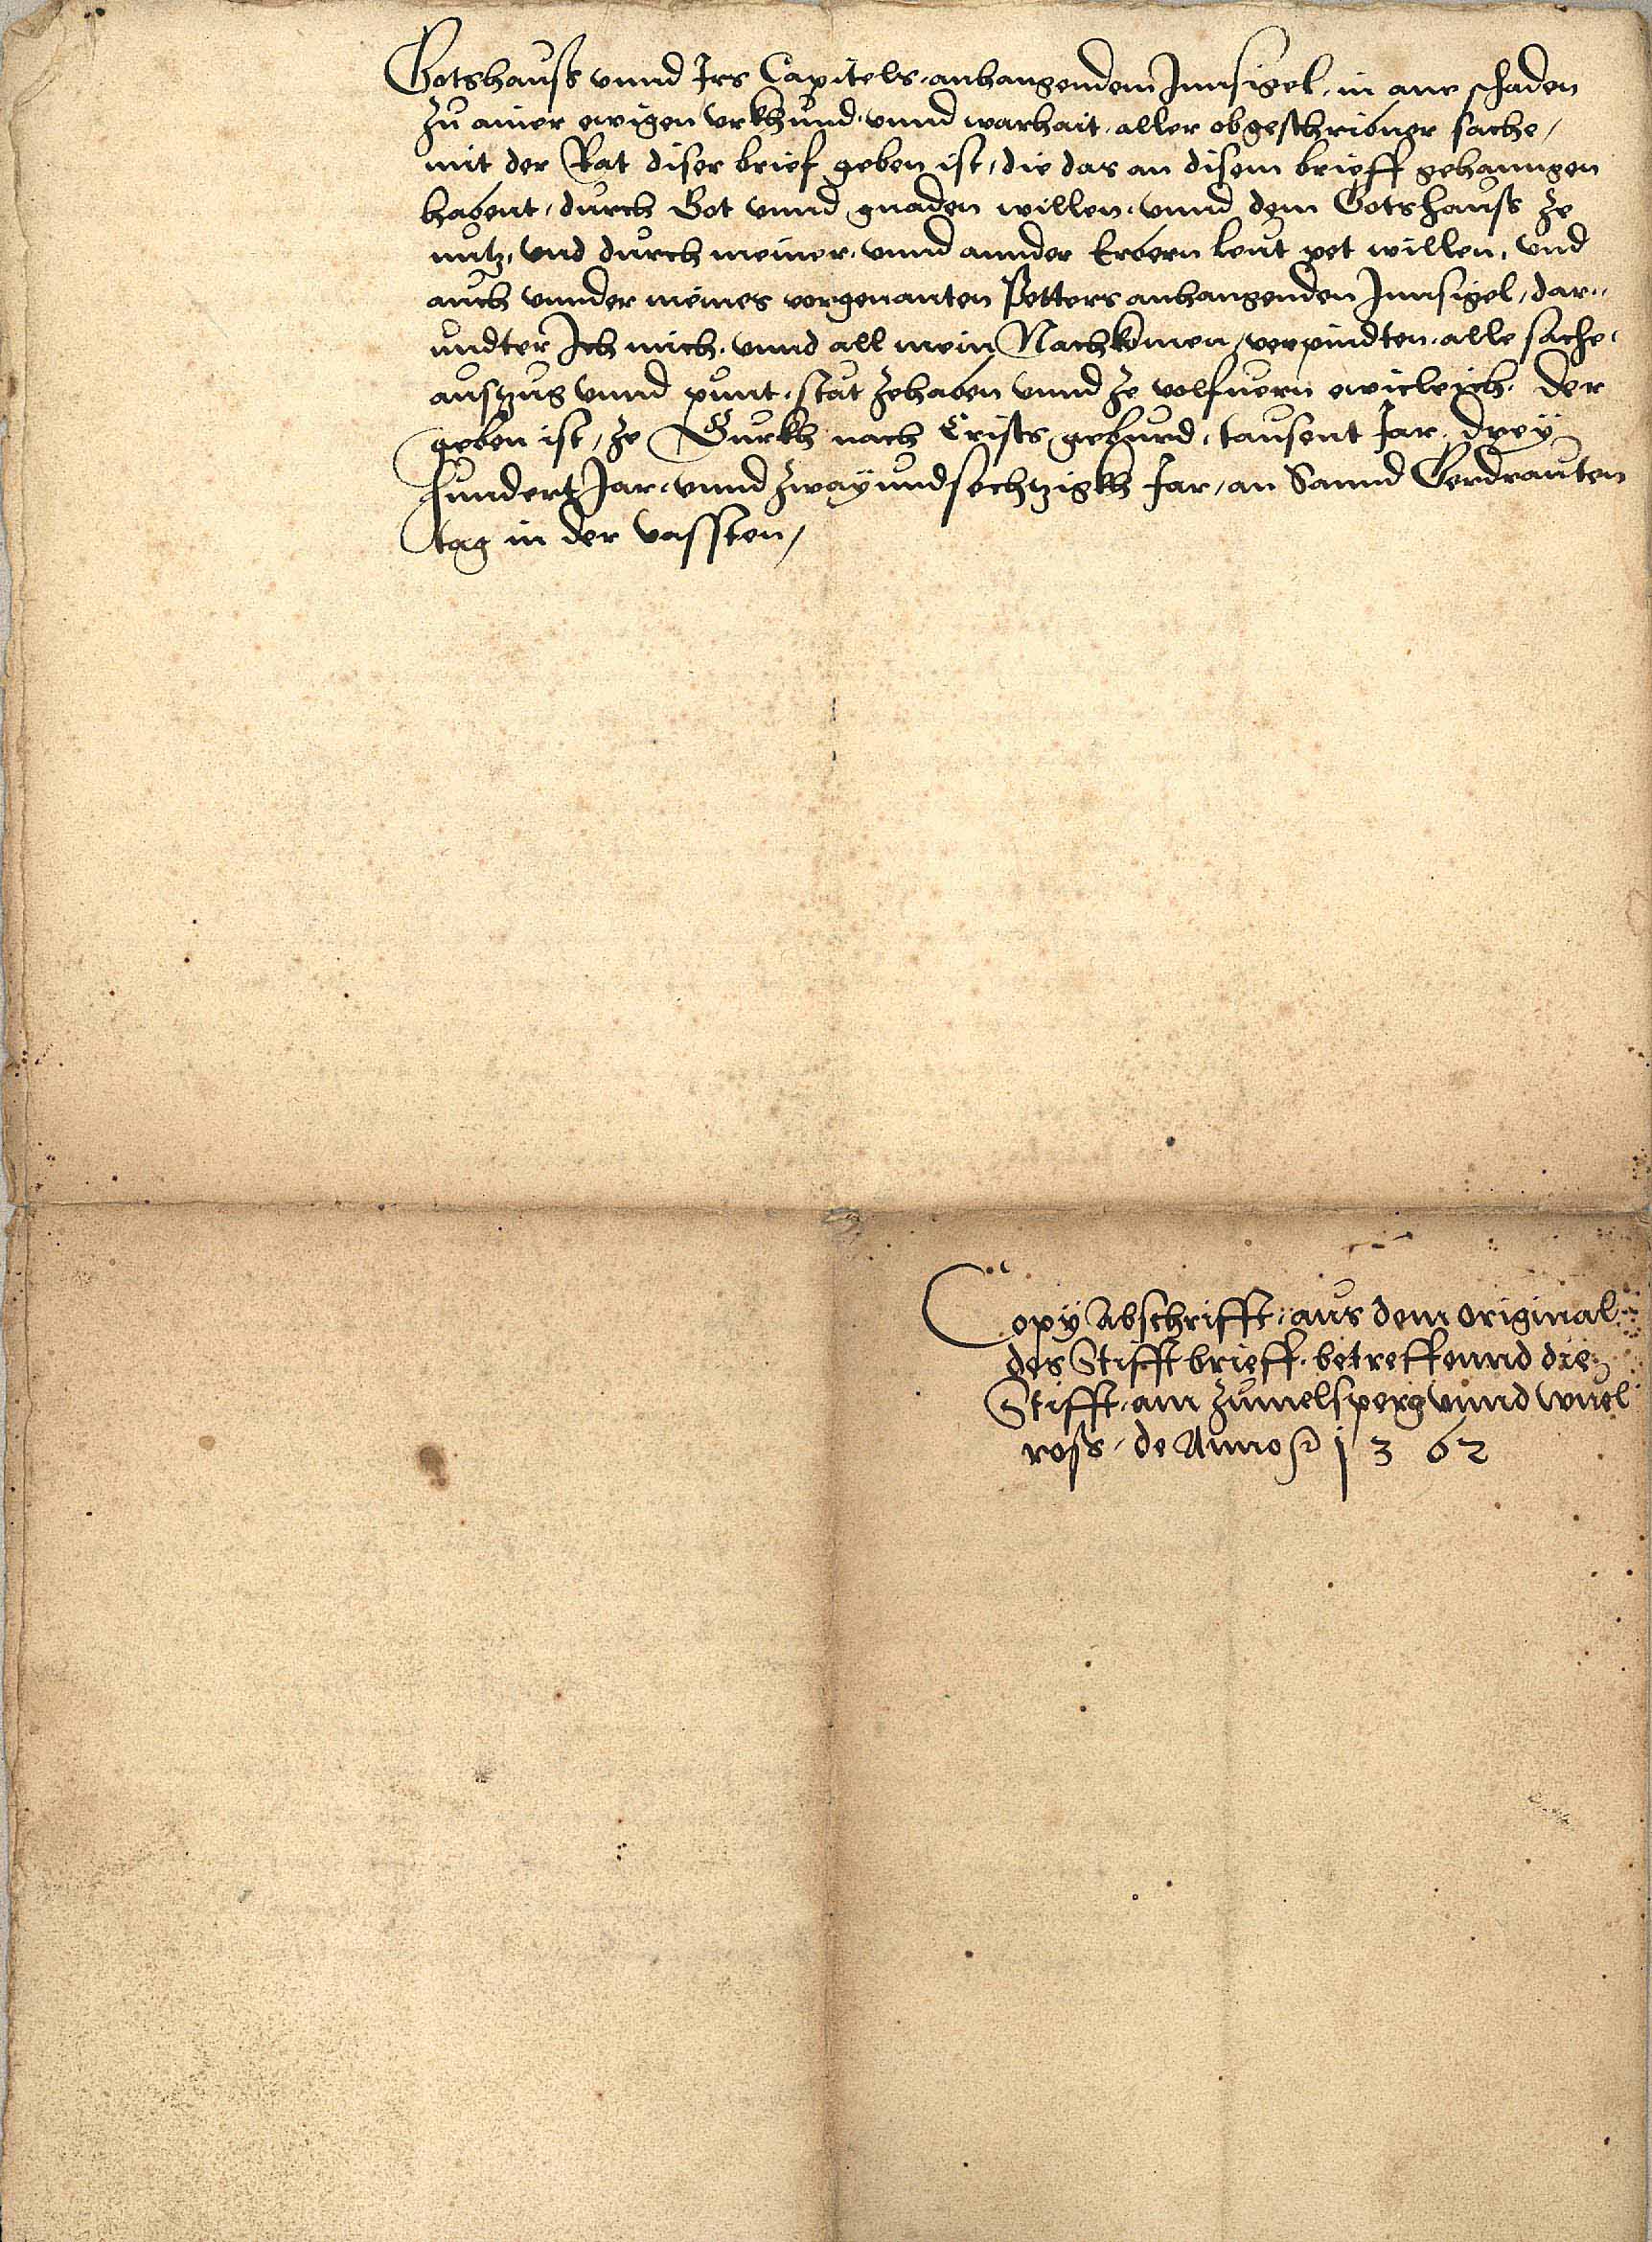 Gotshauss vnnd Irs Capitels, anhangendem Innsigel, in ane schaden
zu ainer ewigen vrkhund, vnnd warhait, aller obgeschribner sache,
mit der Rat diser brief geben ist, die das an disem brieff gehanngen
habent, durch Got vnnd gnaden willen, vnnd dem Gotshauss ze
nutz, vnd durch meiner, vnnd annder Erbern leut pet willen, vnd
auch vnnder meines vorgenanten Vetters anhangenden Innsigel, dar„
undter Ich mich, vnnd all mein Nachkomen, verpindten, alle sache,
auszug vnnd punt, stat zehaben vnnd ze volfuern ewicleich. Der
geben ist, ze Gurkh nach Crists geburd, tausent Jar, drey
hundert Jar, vnnd zway undsechtzigkh Jar, an Sannd Gerdrauten
tag in der vassten,
Copy Abschrifft, aus dem original
des Stifft brieff, betreffennd die
Stifft, am Zumelsperg vnnd wuel
ross, de Anno 1362